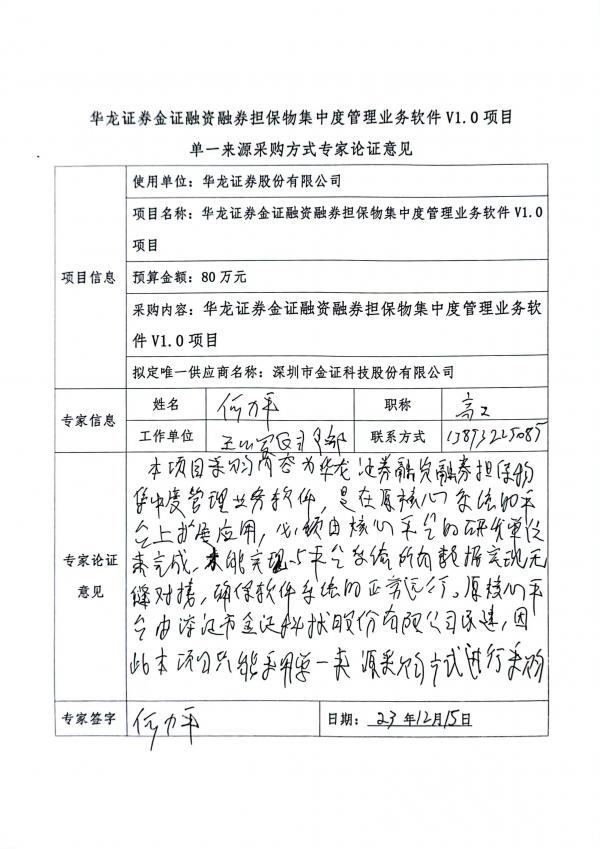 华龙证券金证融资融券担保物集中度管理业务软件 V1.0 项目
单一来源采购方式专家论证意见
项目信息
使用单位：华龙证券股份有限公司
项目名称：华龙证券金证融资融券担保物集中度管理业务软件 V1.0
项目
预算金额：80 万元
采购内容：华龙证券金证融资融券担保物集中度管理业务软
件 V1.0 项目
拟定唯一供应商名称：深圳市金证科技股份有限公司
专家信息
姓名
何力平
职称
高工
工作单位
联系方式
专家论证
意见
本项目采购内容为华龙证券融资融券担保物
集中度管理业务软件，是在原核心系统的平
台上扩展应用，必须由核心平台的研发单位
来完成，才能实现与平台系统所有数据实现无
缝对接，确保软件系统的正常运行。原核心平
台由深圳市金证科技股份有限公司承建，因
此本项目只能采用单一来源采购方式进行采购
专家签字
何力平
日期：23 年12月15日